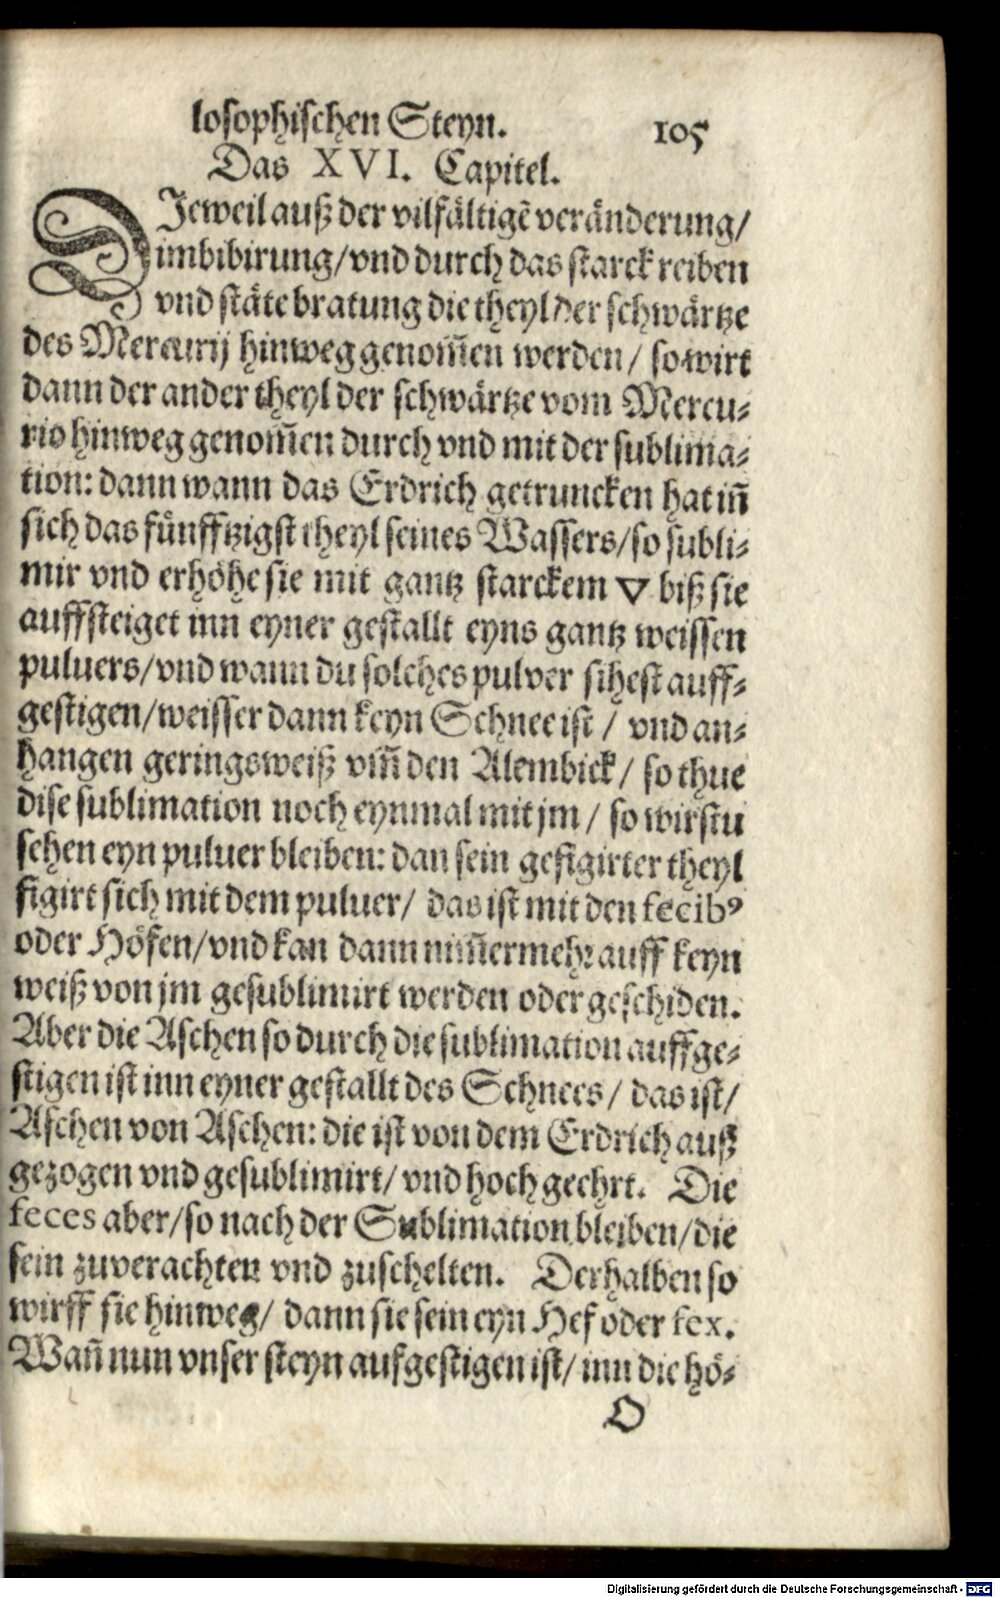 losophischen Steyn. 105
Das XVI. Capitel.
DJeweil auß der vilfältigẽ veränderung/
imbibirung/vnd durch das starck reiben
vnd stäte bratung die theyl der schwärtze
des Mercurij hinweg genom̃en werden/ so wirt
dann der ander theyl der schwärtze vom Mercu-
rio hinweg genom̃en durch vnd mit der sublima-
tion: dann wann das Erdrich getruncken hat iñ
sich das fünfftzigst theyl seines Wassers/so subli-
mir vnd erhöhe sie mit gantz starckem ▽ biß sie
auffsteiget inn eyner gestallt eyns gantz weissen
puluers/vnd wann du solches pulver sihest auff-
gestigen/weisser dann keyn Schnee ist / vnd an-
hangen geringsweiß vm̃ den Alembick/ so thue
dise sublimation noch eynmal mit jm / so wirstu
sehen eyn puluer bleiben: dan sein gefigirter theyl
figirt sich mit dem puluer/ das ist mit den fecibꝰ
oder Höfen/vnd kan dann nim̃ermehr auff keyn
weiß von jm gesublimirt werden oder geschiden.
Aber die Aschen so durch die sublimation auffge-
stigen ist inn eyner gestallt des Schnees / das ist/
Aschen von Aschen: die ist von dem Erdrich auß
gezogen vnd gesublimirt/ vnd hoch geehrt. Die
feces aber/so nach der Sublimation bleiben/die
sein zuverachten vnd zuschelten. Derhalben so
wirff sie hinweg/ dann sie sein eyn Hef oder fex.
Wañ nun vnser steyn aufgestigen ist/ inn die hö-
O
Digitalisierung gefördert durch die Deutsche Forschungsgemeinschaft - DFG